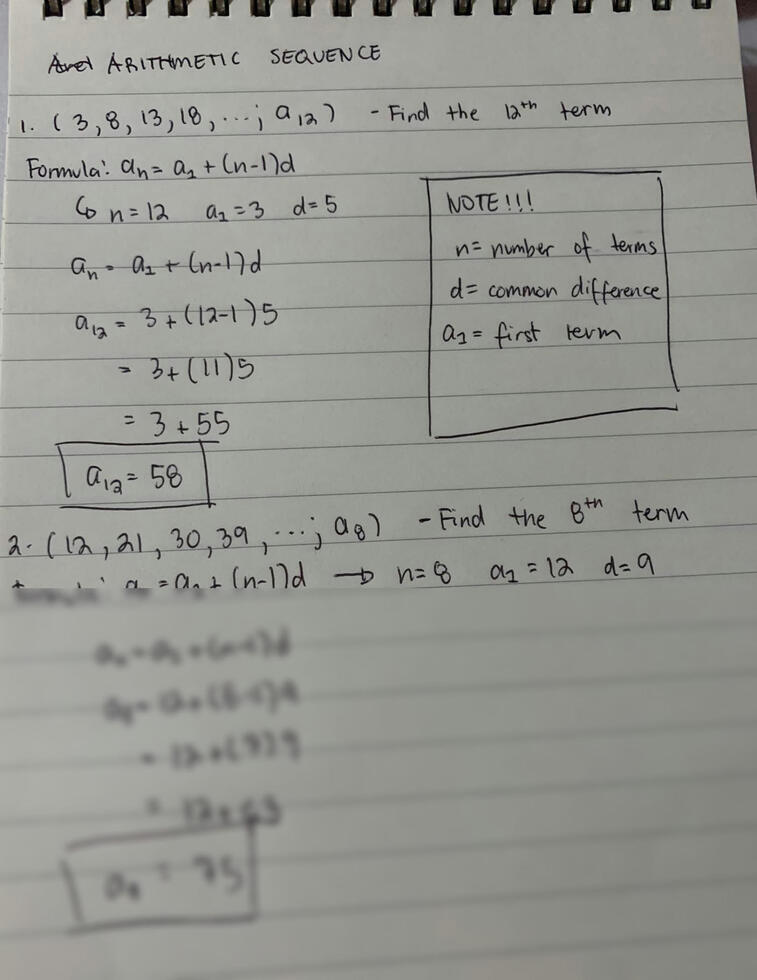 ARITHMETIC SEQUENCE
1. (3, 8, 13, 18, ...; a₁₂) - Find the 12th term
Formula: aₙ = a₁ + (n-1)d
n = 12 a₁ = 3 d = 5
aₙ = a₁ + (n-1)d
a₁₂ = 3 + (12-1)5
= 3 + (11)5
= 3 + 55
a₁₂ = 58
NOTE!!!
n = number of terms
d = common difference
a₁ = first term
2. (12, 21, 30, 39, ...; a₈) - Find the 8th term
= a₁ + (n-1)d → n = 8 a₁ = 12 d = 9
= 12 + 63
= 75